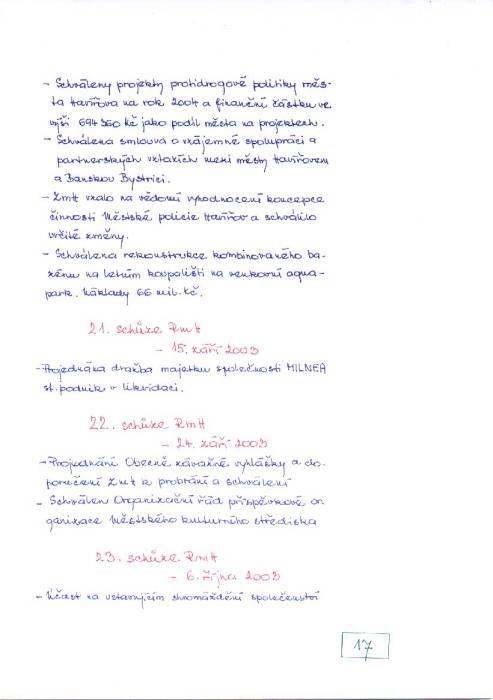 - Schváleny projekty protidrogové politiky měs-
ta Havířova na rok 2004 a finanční částku ve
výši 694 360 Kč jako podíl města na projektech.
- Schválena smlouva o vzájemné spolupráci a
partnerských vztazích mezi městy Havířovem
a Banskou Bystricí.
- ZmH vzalo na vědomí vyhodnocení koncepce
činnosti Městské policie Havířov a schválilo
určité změny.
- Schválena rekonstrukce kombinovaného ba-
zénu na letním koupališti na venkovní aqua-
park. Náklady 66 mil. Kč.
21. schůze RmH
- 15. září 2003
- Projednána dražba majetku společnosti MILNEA
st. podnik v likvidaci.
22. schůze RmH
- 24. září 2003
- Projednání Obecně závazné vyhlášky a do-
poručení ZmH k probrání a schválení
- Schválen Organizační řád příspěvkové or-
ganizace Městského kulturního střediska
23. schůze RmH
- 6. října 2003
- Účast na ustavujícím shromáždění společenství
17